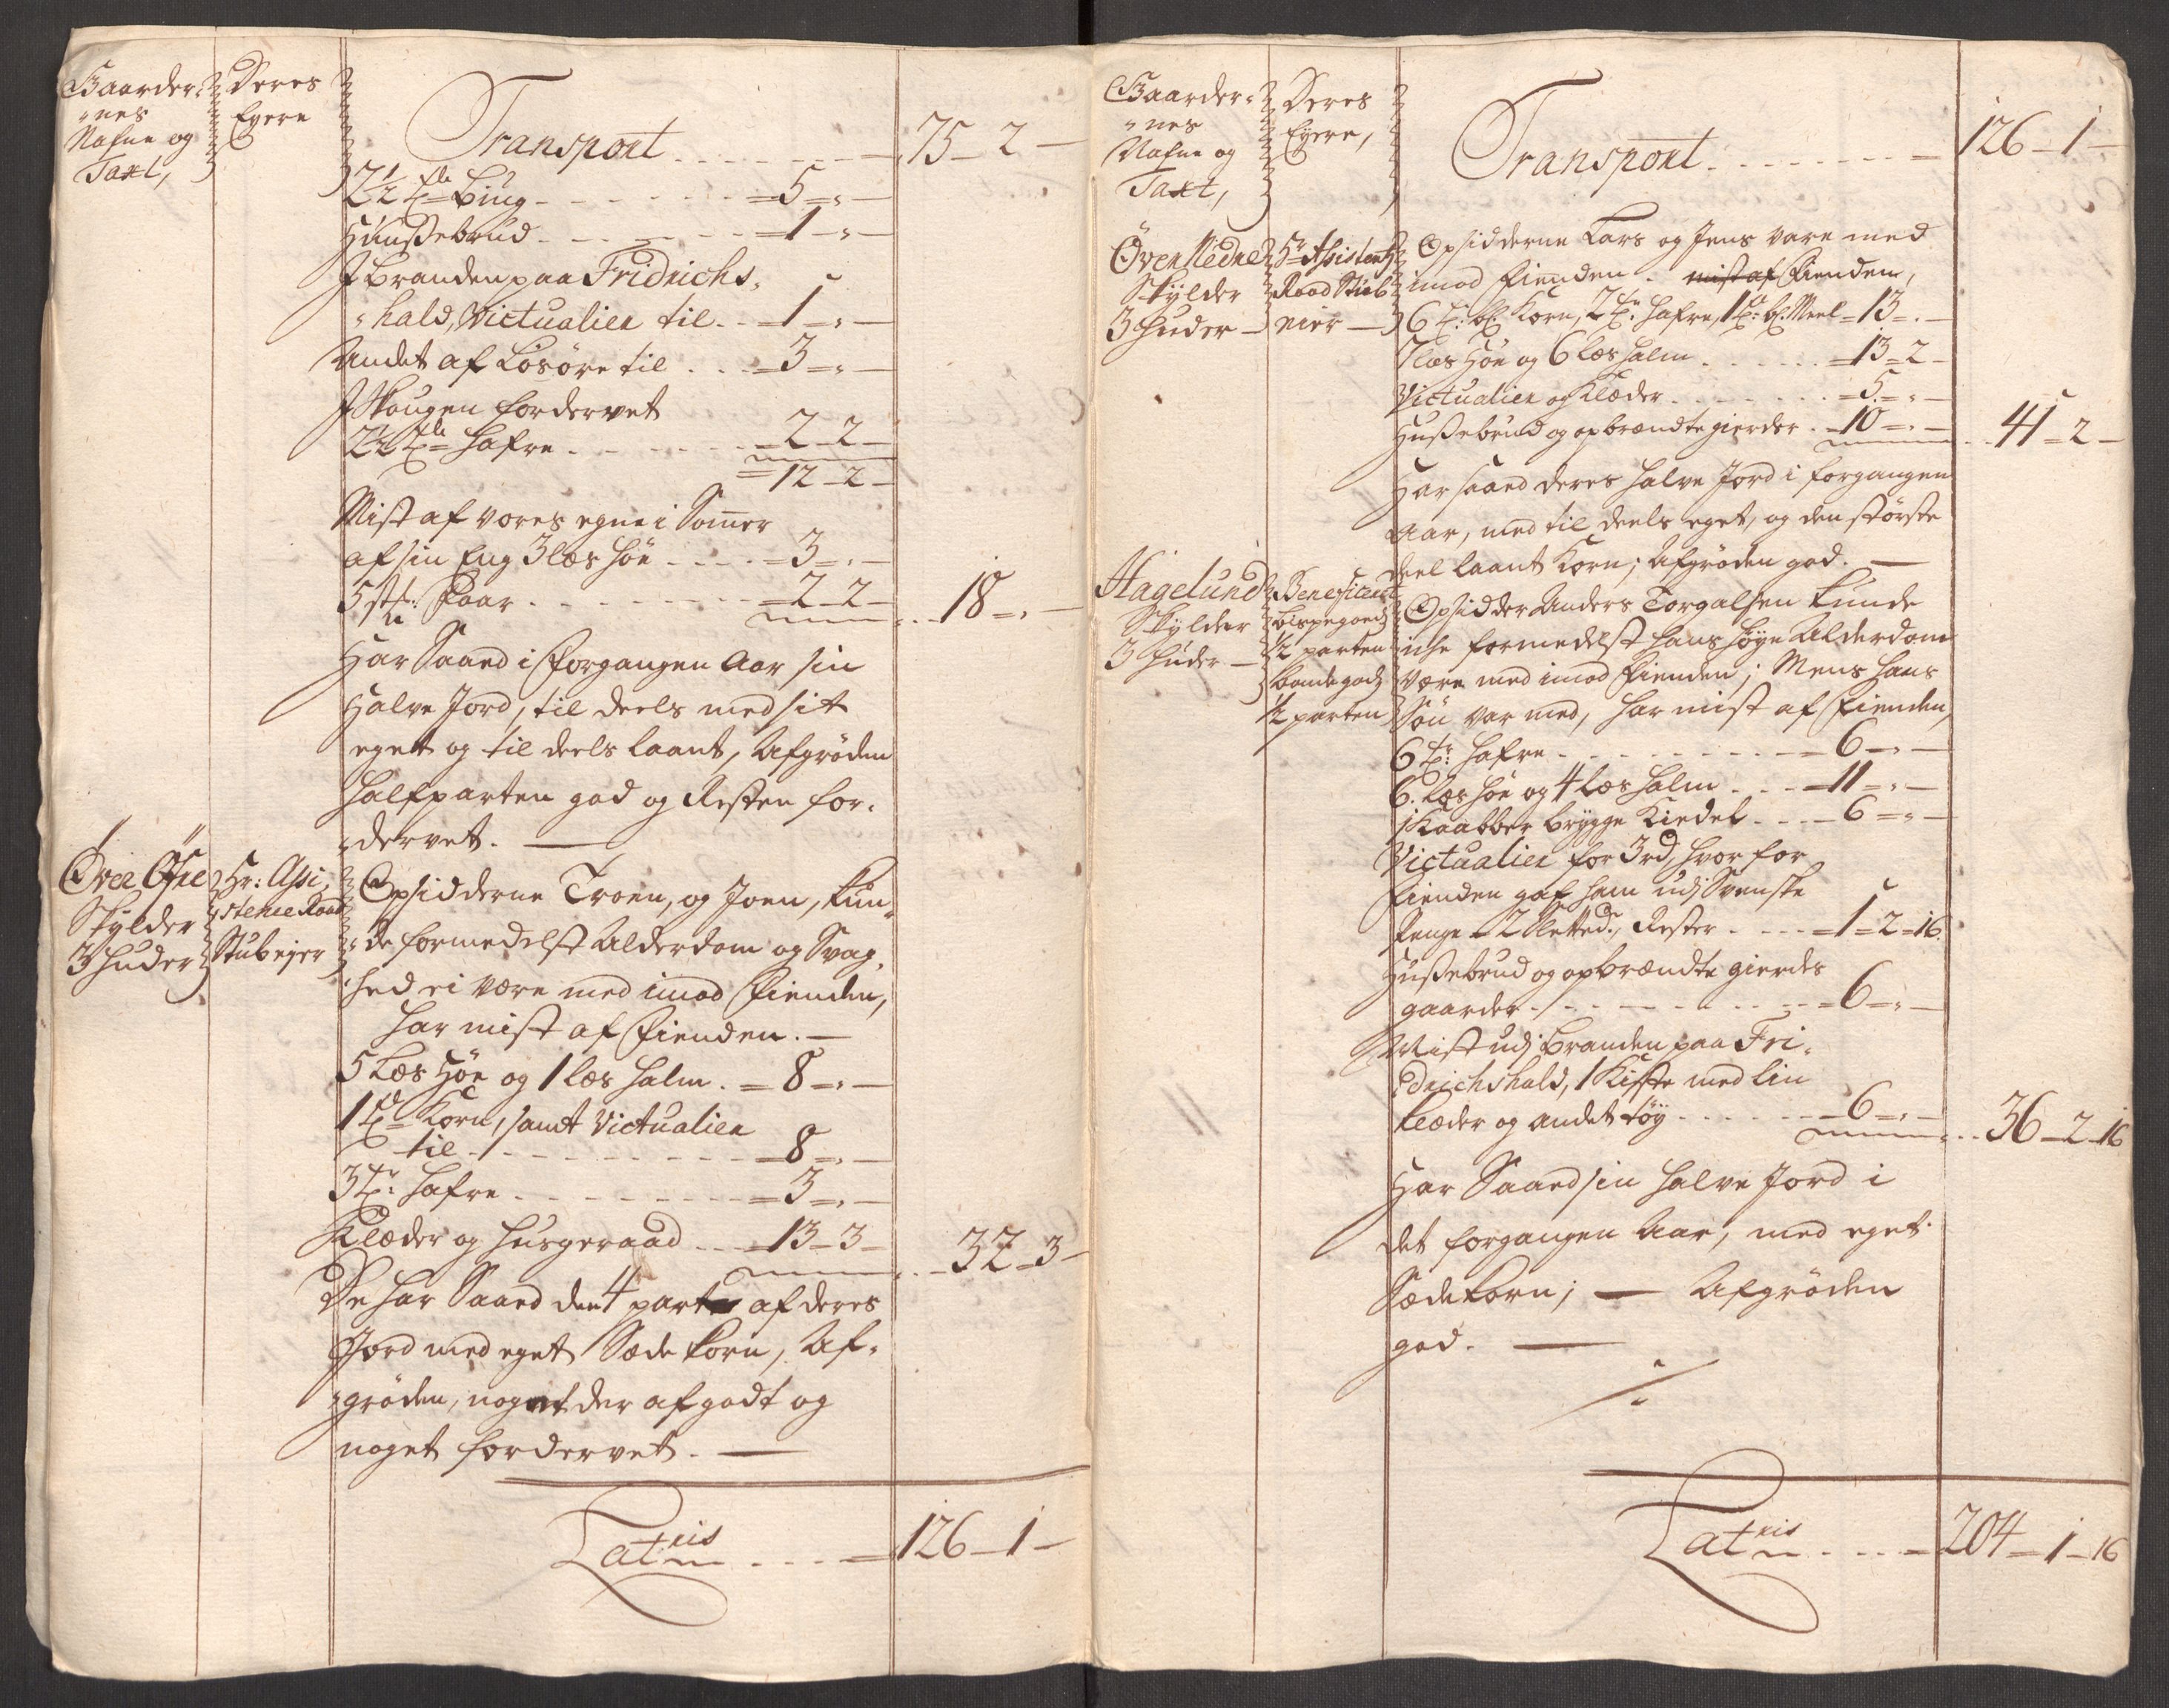 Gaarder-
nes
Nafne og
Taxt,
Deres
Eyere
Transport - - - 75 - 2 -
2 1/2 tde Biug - - - 5 - " -
Hussebrud - - - 1 - " -
J branden paa Fridrichs-
hald, Victualier til - - 1 - " -
Andet af Løsøre til - - 3 - " -
J Skougen fordervet
2 1/2 tde Hafre - - - 2 - 2 -
12 - 2 -
Mist af vores egne i Somer
af sin Eng 3 læs Høe - - - 3 - " -
5 st: Faar - - - 2 - 2 - 18 - " -
Har Saaed i forgangen Aar sin
Halve Jord, til deels med sit
eget og til deels laant, Afgrøden
Halfparten god og Resten for-
dervet. —
Over
Skylder
3 Huder
Hr: Assi-
stence Raad
Stubejer
Opsidderne Troen, og Joen, kun-
de formedelst Alderdom og Svag-
hed ei være med imod Fienden,
har mist af Fienden. —
5 Læs Høe og 1 læs Halm. - 8 - " -
1 td Korn, samt Victualier
til - - - 8 - " -
3 tr: Hafre - - - 3 - " -
Klæder og Husgeraad - - - 13 - 3 - 32 - 3 -
De har Saaed den 4 part af deres
Jord med eget Sæde korn, Af-
grøden, noget der af godt og
noget fordervet. —
Lateris - - - 126 - 1 -
Gaarder-
nes
Nafne og
Taxt,
Deres
Eyere,
Transport - - - 126 - 1 -
Øven Nedne
Skylder
3 Huder —
Hr Assistentz
Raad Stub
eier —
Opsidderne Lars og Jens vare med
imod Fienden. mist af Fienden,
6 tr: bl: Korn, 2 tr: Hafre, 1 td: bl: Meel - 13 - " -
7 læs Høe og 6 læs Halm - - - 13 - 2 -
Victualier og Klæder - - - 5 - " -
Hussebrud og opbrændte gierder - 10 - " - 41 - 2 -
Har saaed deres halve Jord i forgangen
Aar, med til deels eget, og den største
deel laant Korn; Afgrøden god. —
Hagelund
Skylder
3 Huder —
Beneficeret
1/2 parten
bondegods
1/2 parten
Opsidder Anders Torgalsen kunde
iche formedelst hans høye Alderdom
være med imod Fienden; Mens hans
Søn var med, har mist af Fienden,
6 tr: Hafre - - - 6 - " -
6. Læs Høe og 4 læs Halm - - - 11 - " -
1 Kaabber brygge Kiedel - - - 6 - " -
Victualier for 3 rd, hvor for
Fienden gaf ham udj Svenske
Penge 2 Slettedr, Rester - - - 1 - 2 - 16
Hussebrud og opbrændte gierdes
gaarder - - - 6 - " -
Mist udj branden paa Fri-
drichshald, 1 Kiste med lin
klæder og andet tøy - - - 6 - " - 36 - 2 - 16
Har Saaed sin halve Jord i
det forgangen Aar, med eget
Sædekorn; — Afgrøden
god. —
Lateris - - - 204 - 1 - 16